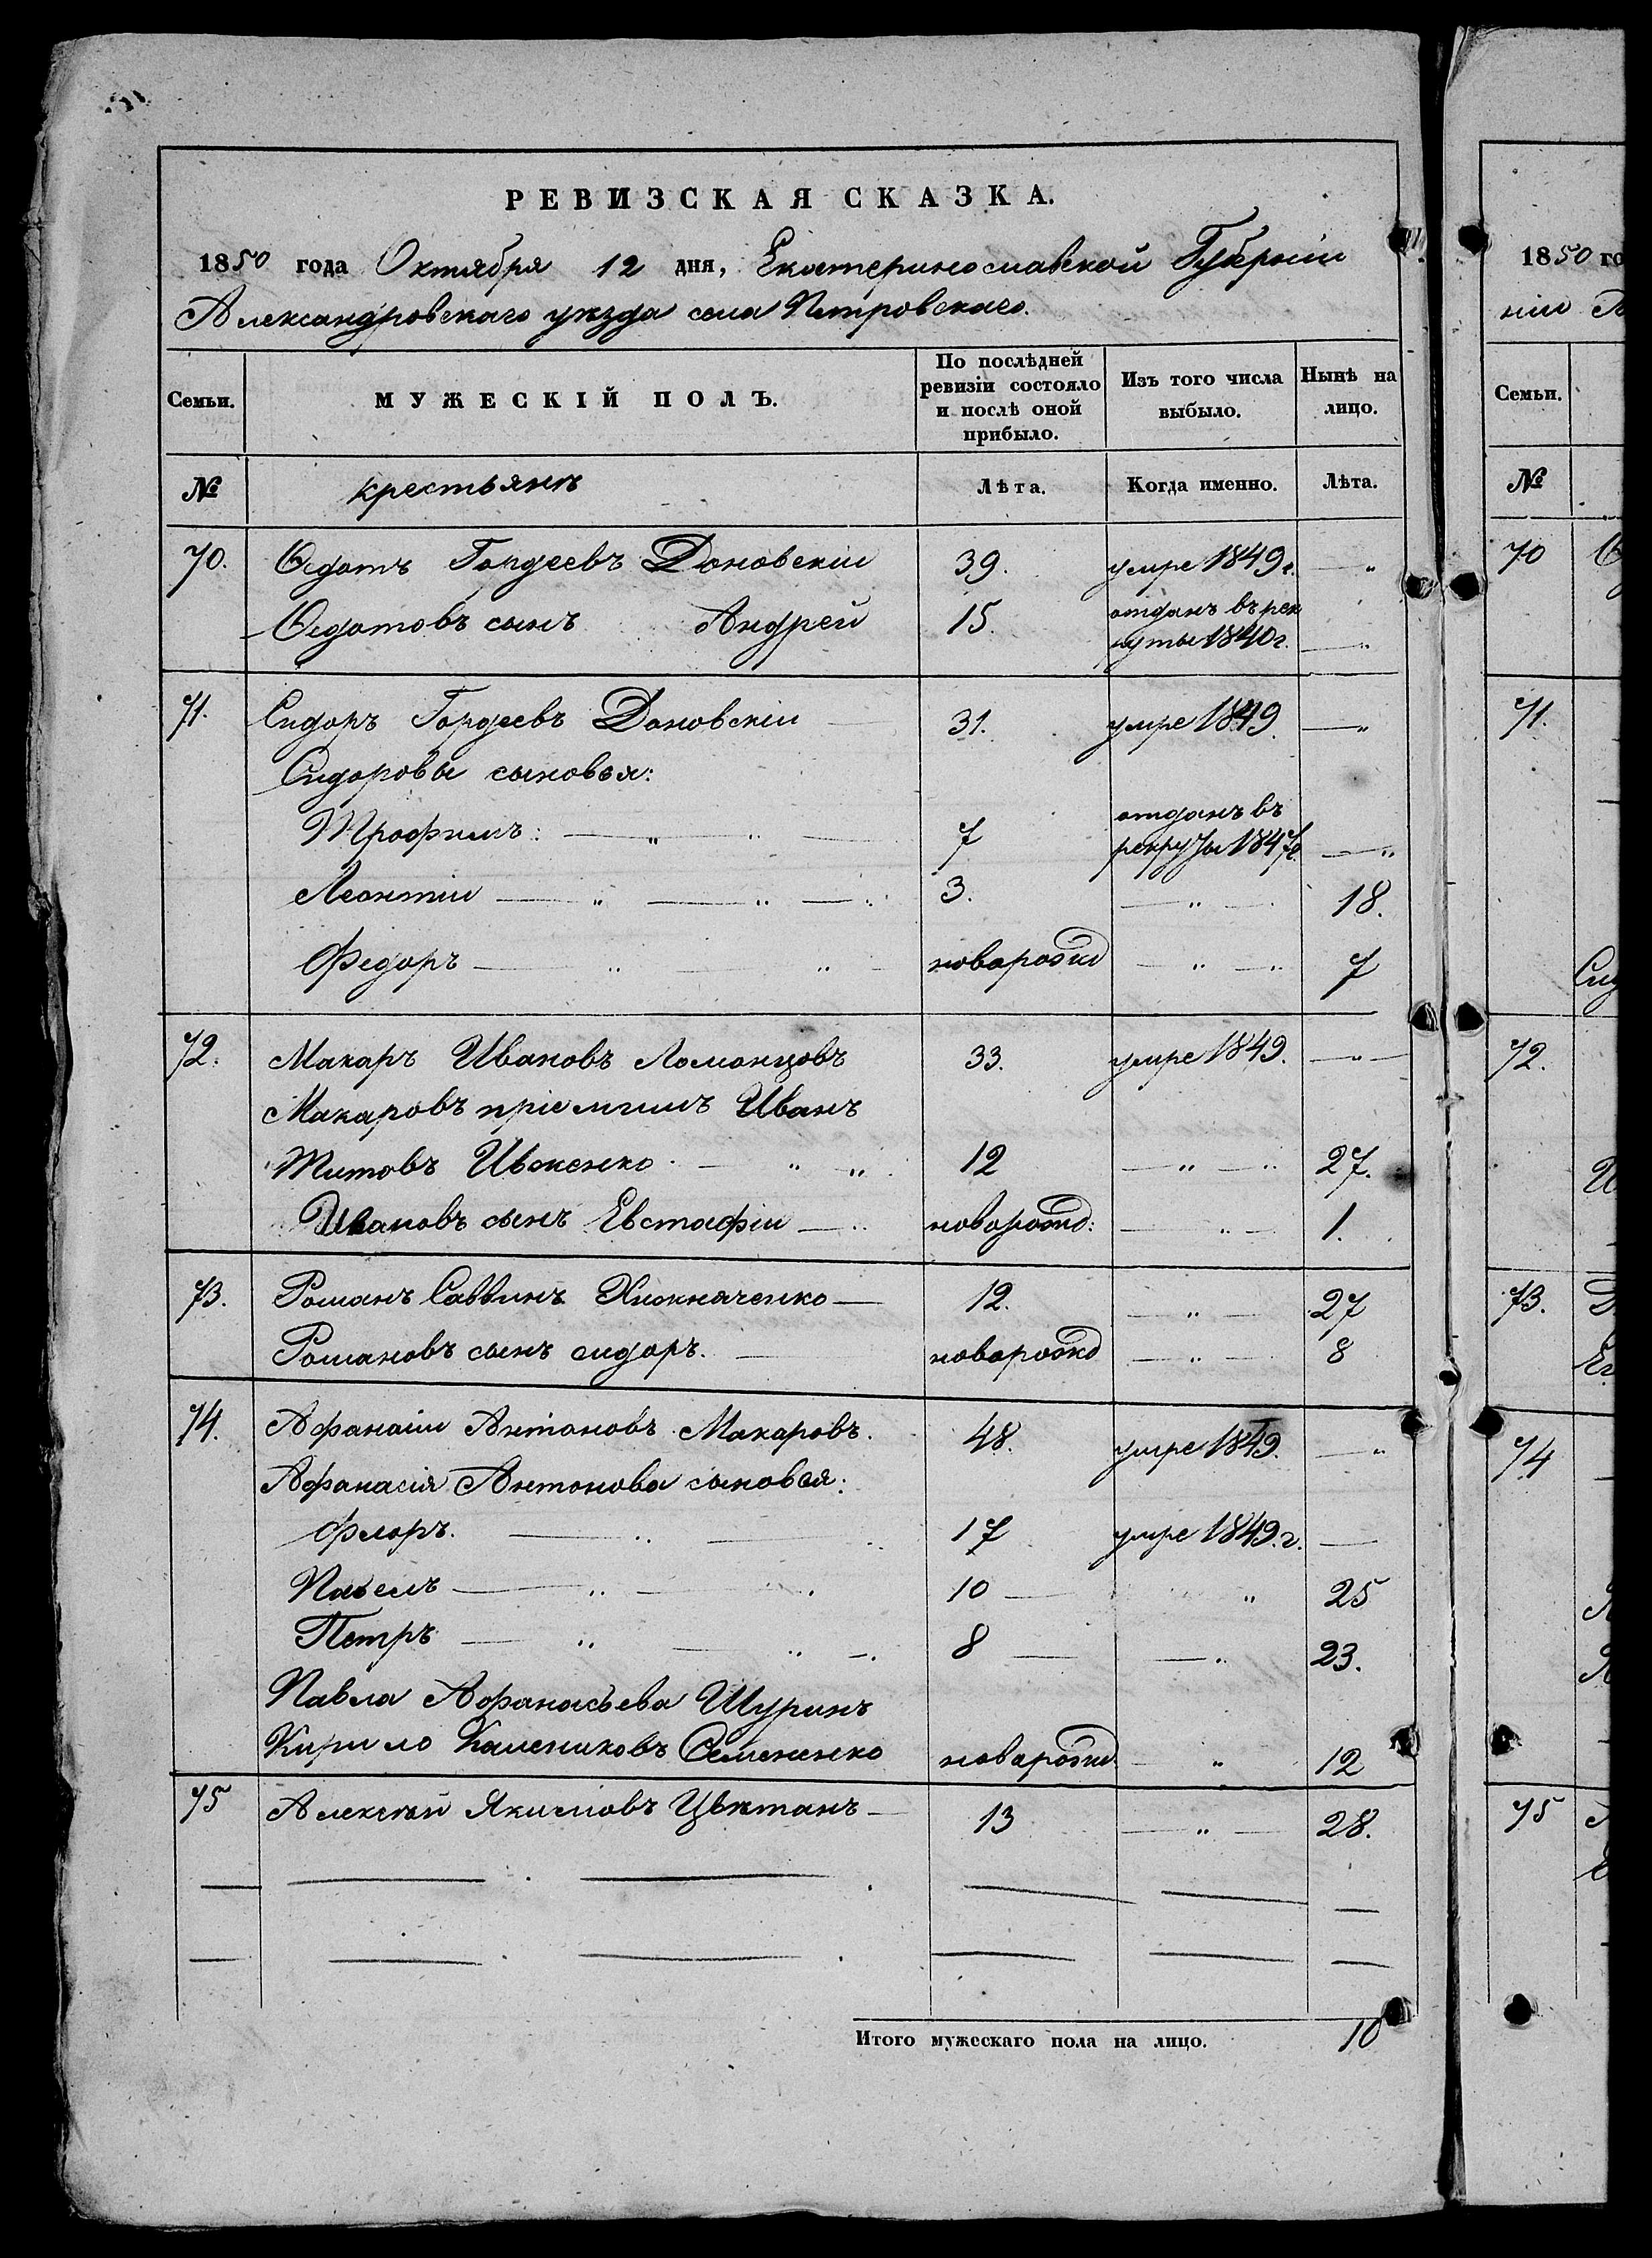 РЕВИЗСКАЯ СКАЗКА.
1850 года Октября 12 дня, Екатеринославской Губерніи
Александровскаго уѣзда села Петровскаго.
Семьи. МУЖЕСКІЙ ПОЛЪ. По послѣдней ревизіи состояло и послѣ оной прибыло. Изъ того числа выбыло. Нынѣ на лицо.
№ крестьянъ Лѣта. Когда именно. Лѣта.
70. Ѳедотъ Гордеевъ Доновскіи 39. умре 1849 г. — "
Ѳедотовъ сынъ Андрей 15. отданъ въ рекруты 1840 г. — "
71. Сидоръ Гордеевъ Доновскіи 31. умре 1849 — "
Сидоровы сыновья:
Трофимъ: — " 7 отданъ въ рекруты 1847 г — "
Леонтіи — " — " 3. — " — 18.
Федоръ — " — " новорожд — " — 7
72. Макаръ Ивановъ Ломонцовъ 33. умре 1849. — " —
Макаровъ пріемышъ Иванъ
Титовъ Ивженко — " 12 — " — 27.
Ивановъ сынъ Евстафіи — новорожд: — " — 1.
73. Романъ Саввинъ 12. — " — 27
Романовъ сынъ сидоръ. — новорожд — " — 8
74. Афанаіи Антоновъ Макаровъ. 48. умре 1849. — "
Афанасія Антонова сыновья:
Флоръ. — " — 17 умре 1849. г. —
Павелъ — " — 10 — " 25
Петръ — " — " 8 — — " 23.
Павла Афанасьева Шуринъ
Кирило Семененко новорожд — " 12
75 Алексѣй Якимовъ Цвѣтанъ — 13 — " — 28.
Итого мужескаго пола на лицо. 10
1850 го
ніи
Семьи.
№
70
71.
Сид
72.
73.
74
75